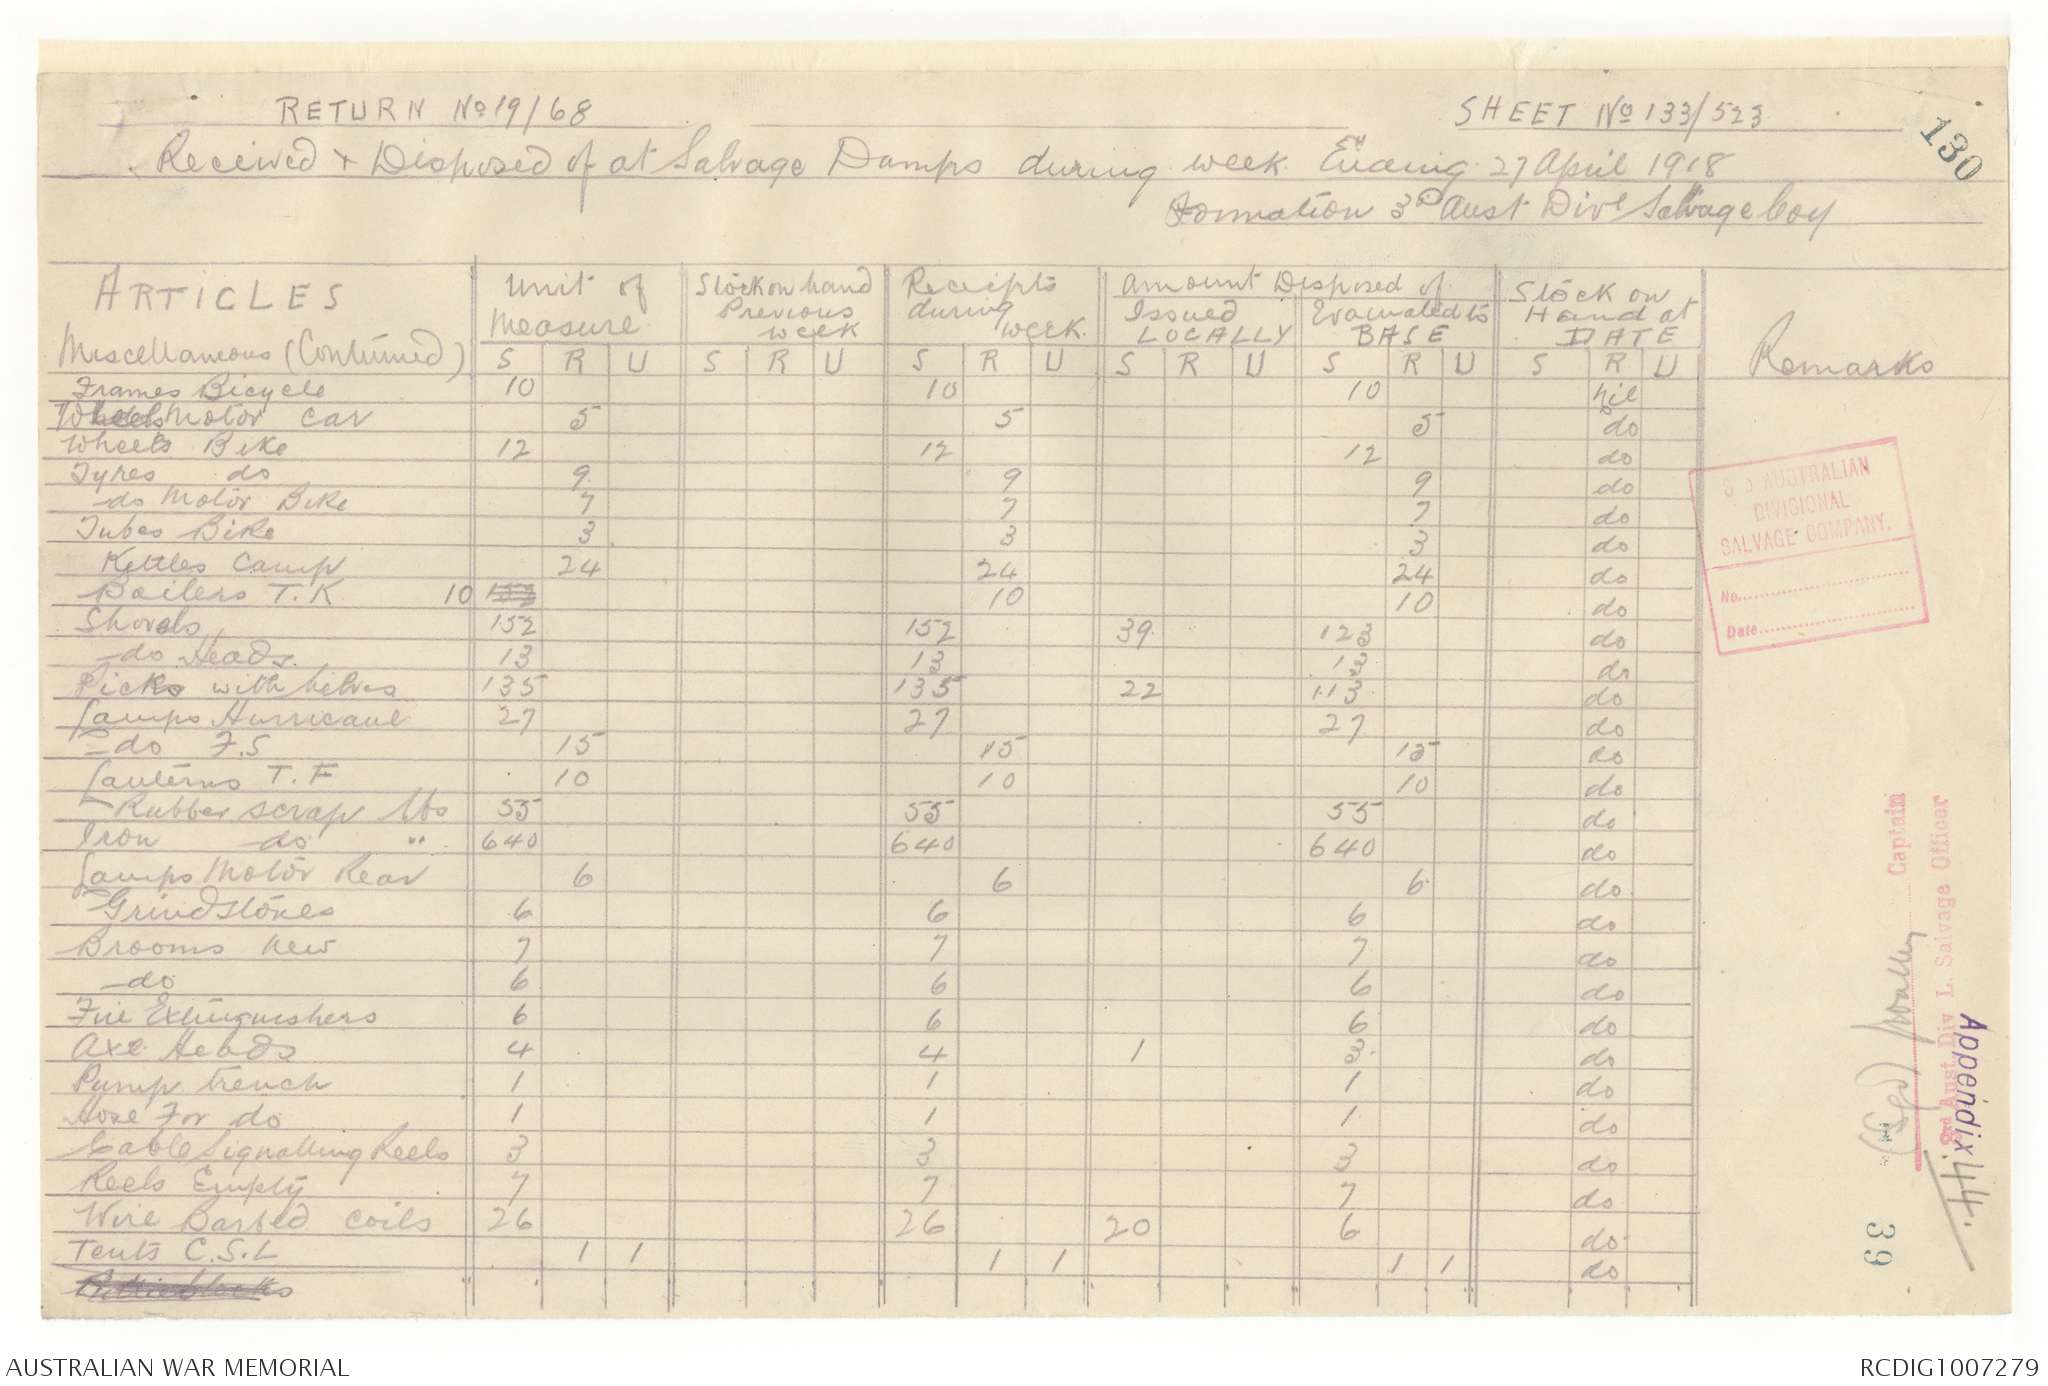 RETURN No 19/68
SHEET No 133/523
130
Received & Disposed of at Salvage Dumps during week Ending 27 April 1918
Formation 3D Aust Divl Salvage Coy
ARTICLES Unit of Measure Stock on hand Previous week Receipts during week. Amount Disposed of Issued LOCALLY Evacuated to BASE Stock on Hand at DATE Remarks
Miscellaneous (Continued) S R U S R U S R U S R U S R U S R U
Frames Bicycle 10 10 10 nil
Wheels Motor Car 5 5 5 do
Wheels Bike 12 12 12 do
Tyres do 9 9 9 do
do Motor Bike 7 7 7 do
Tubes Bike 3 3 3 do
Kettles Camp 24 24 24 do
Boilers T.K 10 10 10 do
Shovels 152 152 39 123 do
do Heads 13 13 13 do
Picks with helves 135 135 22 113 do
Lamps Hurricane 27 27 27 do
do F.S 15 15 15 do
Lanterns T.F 10 10 10 do
Rubber scrap lbs 55 55 55 do
Iron do " 640 640 640 do
Lamps Motor Rear 6 6 6 do
Grindstones 6 6 6 do
Brooms New 7 7 7 do
do 6 6 6 do
Fire Extinguishers 6 6 6 do
Axe Heads 4 4 1 3 do
Pump trench 1 1 1 do
Hose For do 1 1 1 do
Cable Signalling Reels 3 3 3 do
Reels Empty 7 7 7 do
Wire Barbed coils 26 26 20 6 do
Tents C.S.L 1 1 1 1 1 1 do
3D AUSTRALIAN
DIVISIONAL
SALVAGE COMPANY.
No.
Date
(Sgd) Captain
3rd Aust Div L. Salvage Officer
Appendix 44.
39
AUSTRALIAN WAR MEMORIAL
RCDIG1007279